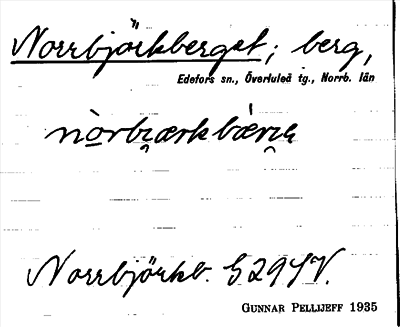 Norrbjörkberget; berg,
Edefors sn., Överluleå tg., Norrb. län
Norrbjörkb. S29SV.
GUNNAR PELLIJEFF 1935